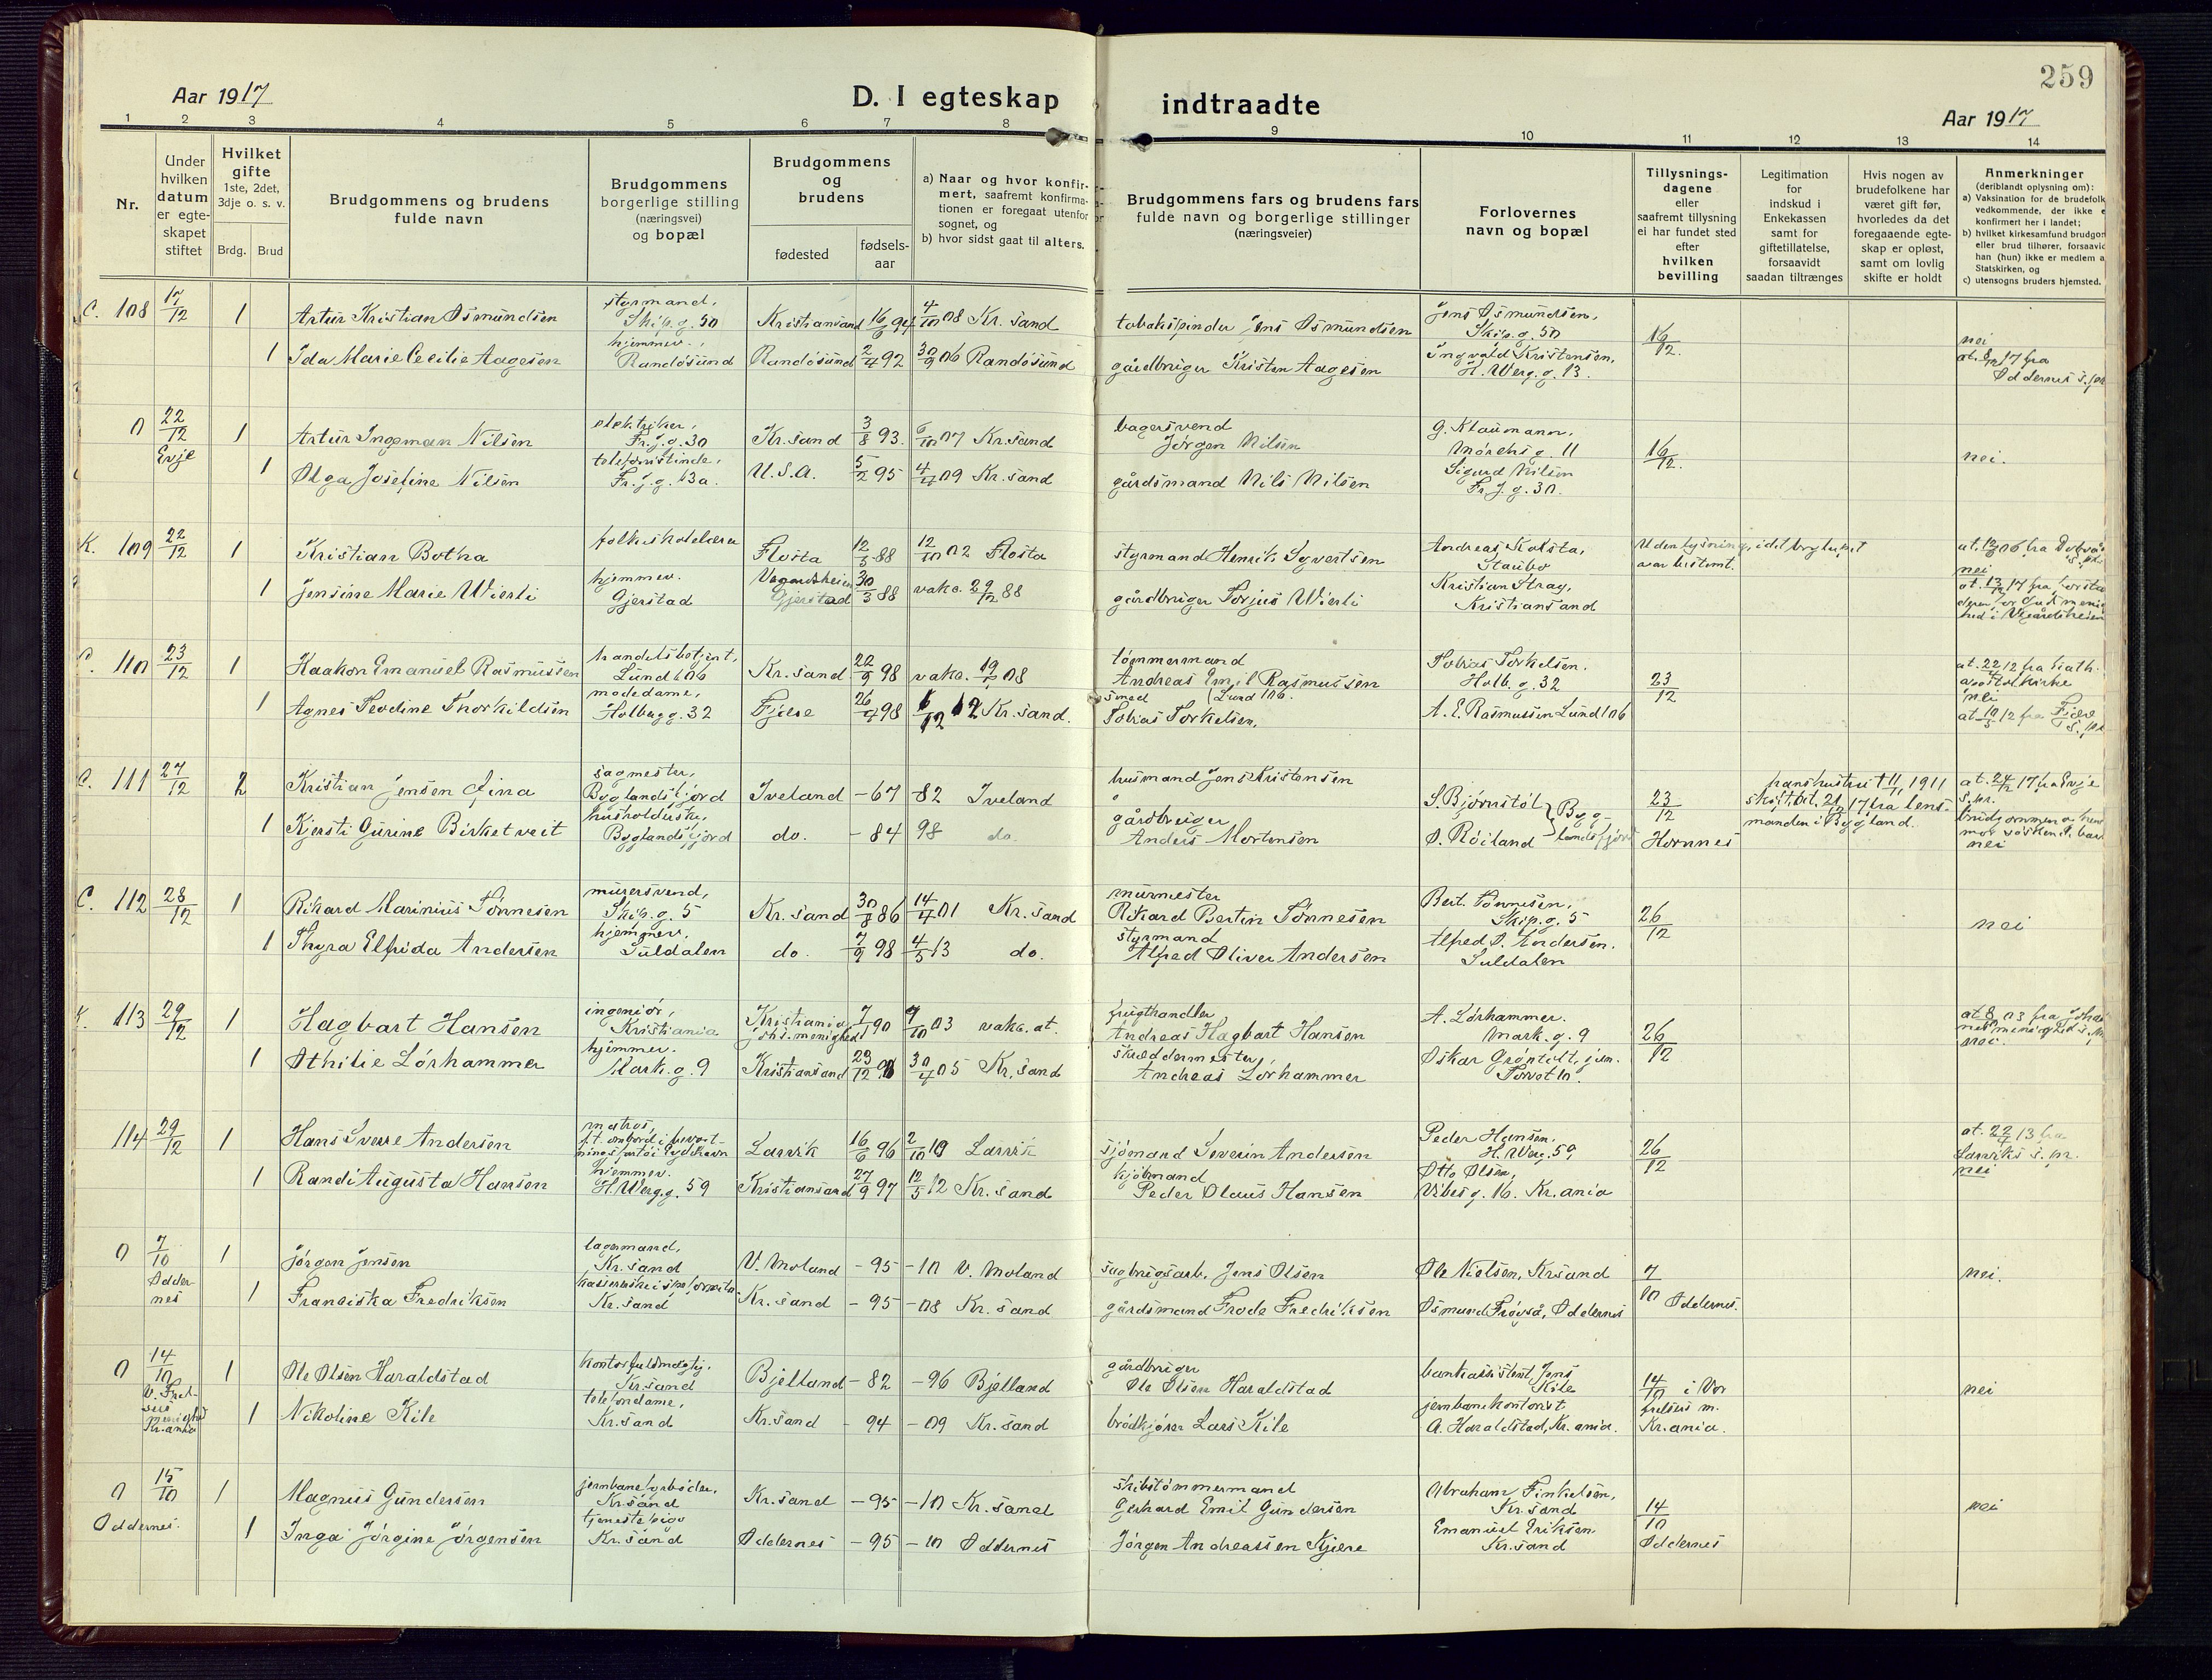 259
Aar 1917
D. I egteskap indtraadte
Aar 1917
1 2 3 4 5 6 7 8 9 10 11 12 13 14
Nr.
Under hvilken datum er egte-skapet stiftet
Hvilket gifte
1ste, 2det, 3dje o. s. v.
Brdg. Brud
Brudgommens og brudens fulde navn
Brudgommens borgerlige stilling (næringsvei) og bopæl
Brudgommens og brudens
fødested
fødsels-aar
a) Naar og hvor konfir-mert, saafremt konfirma-tionen er foregaat utenfor sognet, og
b) hvor sidst gaat til alters.
Brudgommens fars og brudens fars fulde navn og borgerlige stillinger (næringsveier)
Forlovernes navn og bopæl
Tillysnings-dagene eller saafremt tillysning ei har fundet sted efter hvilken bevilling
Legitimation for indskud i Enkekassen samt for giftetillatelse, forsaavidt saadan tiltrænges
Hvis nogen av brudefolkene har været gift før, hvorledes da det foregaaende egte-skap er opløst, samt om lovlig skifte er holdt
Anmerkninger
(deriblandt oplysning om):
a) Vaksination for de brudefolk vedkommende, der ikke e konfirmert her i landet;
b) hvilket kirkesamfund brudgom eller brud tilhører, forsaavid han (hun) ikke er medlem a Statskirken, og
c) utensogns bruders hjemsted.
C. 108 17/12 1 Artur Kristian Osmundsen styrmand, Skip.g. 50 Kristiansand 94 4/10 08 Kr. sand tobakspinder Jens Osmundsen Jens Osmundsen, Skip.g. 50 16/12 nei
1 Ida Marie Cecilie Aagesen hjemmev., Randøsund Randøsund 2/4 92 30/9 06 Randøsund gårdbruger Kristen Aagesen Ingvald Kristensen, H. Werg.g. 13. at. 17 fra Oddernes
0 22/12 Evje 1 Artur Ingeman Nilsen elektriker, Fr.j.g. 30 Kr.sand 3/8 93. 6/10 07 Kr.sand bagersvend Jørgen Nilsen G. Klaumann, Mørchs g. 11 16/12. nei.
1 Olga Josefine Nilsen telefonistinde, Fr.j.g. 13a. U.S.A. 5/2 95 4/4 09 Kr.sand gårdsmand Nils Nilsen Sigurd Nilsen Fr.J.g. 30.
K. 109 22/12 1 Kristian Botha folkeskolelærer Flosta 12/5 88 12/10 02 Flosta styrmand Henrik Syvertsen Andreas Kolsta, Staubø Uden lysning, idet bryllupet var bestemt. nei
1 Jensine Marie Wierli hjemmev. Gjerstad Vegaardsheien Gjerstad 30/3 88 vaks. 29/12 88 gårdbruger Torjus Wierli Kristian Stray, Kristiansand
110 23/12 1 Haakon Emanuel Rasmussen handelsbetjent, Lund 106 Kr.sand 22/9 98 vaks. 08 tømmermand Andreas Emil Rasmussen Lund 106. Tobias Torkelsen. Holb.g. 32 23/12 at. 22/2 12 fra kath. apostol kirke nei
1 Agnes Teodine Thorkildsen modedame, Holberg g. 32 Fjære 26/4 98 12 Kr.sand. smed Tobias Torkelsen, A. E. Rasmussen Lund 106
C. 111 27/12 2 Kristian Jensen Fina sagmester, Byglandsfjord Iveland -67 -82 Iveland husmand Jens Kristensen S. Bjørnstøl Byg-landsfjord 23/12 hans hustru † 1911 skift.bet. 17 fra lens-manden i Bygland. at. 24/12 17 fra Evje s.pr.
1 Kjersti Gurine Birketveit husholderske, Byglandsfjord do. -84 98 do. gårdbruger Anders Mortensen O. Røiland Hornnes nei
C. 112 28/12 1 Rikard Marinius Tønnesen murersvend, Skip.g. 5 Kr.sand 30/8 86 14/4 01 Kr.sand murmester Rikard Bertin Tønnesen Bert. Tønnesen, Skip.g. 5 26/12 nei
1 Thyra Elfrida Andersen hjemmev. Suldalen do. 7/9 98 4/5 13 do. styrmand Alfred Oliver Andersen Alfred O. Andersen. Suldalen
K. 113 29/12 1 Hagbart Hansen ingeniør, Kristiania Kristiania joh.s. menighed 90 10 03 vaks. at. frugthandler Andreas Hagbart Hansen A. Lørhammer. Mark.g. 9 26/12 nei.
1 Othilie Lørhammer hjemmev. Mark.g. 9 Kristiansand 23/12 30/4 05 Kr.sand skreddermester, Andreas Lørhammer Oskar Grøntoft, jun. Torvet 10.
114 29/12 1 Hans Sverre Andersen matros, p.t. ombord i bevogt-ningsfartøi Larvik 16/6 96 2/10 10 Larvik sjømand Severin Andersen Peder Hansen. H. Werg. 59 26/12 at. 22/4 13 fra Larviks s.pr.
1 Randi Augusta Hansen hjemmev. H.Werg.g. 59 Kristiansand 27/9 97 12/5 12 Kr.sand kjøbmand Peder Olaus Hansen Otto Olsen, Vibesg. 16. Kr.ania nei
0 7/10 Odder-nes 1 Jørgen Jensen lagermand, Kr.sand V. Moland -95 -10 V. Moland sagbrugsarb. Jens Olsen Ole Nielsen, Krsand 7/10 Oddernes. nei.
1 Franciska Fredriksen Kr.sand Kr.sand -95 -08 Kr.sand gårdsmand Frode Fredriksen Osmund Frøyså, Oddernes
0 14/10 V. Frel-sers menighed Kr.ania 1 Ole Olsen Haraldstad kontorfuldmægtig, Kr.sand Bjelland -82 -96 Bjelland gårdbruger Ole Olsen Haraldstad bankassistent Jens Kile 14/10 i Vor frelsers m. Kr.ania. nei
1 Nikoline Kile telefondame, Kr.sand Kr.sand -94 -09 Kr.sand brødkjører Lars Kile jernbanekontorist A. Haraldstad, Kr.ania.
0 15/10 Oddernes. 1 Magnus Gundersen jernbanearbeider, Kr.sand Kr.sand -95 -10 Kr.sand skibstømmermand Gerhard Emil Gundersen Abraham Finkelsen, Kr.sand 14/10 Oddernes nei
1 Inga Jørgine Jørgensen tjenestepige Kr.sand Oddernes -95 -10 Oddernes Jørgen Andreassen Kjære Emanuel Eriksen. Kr.sand